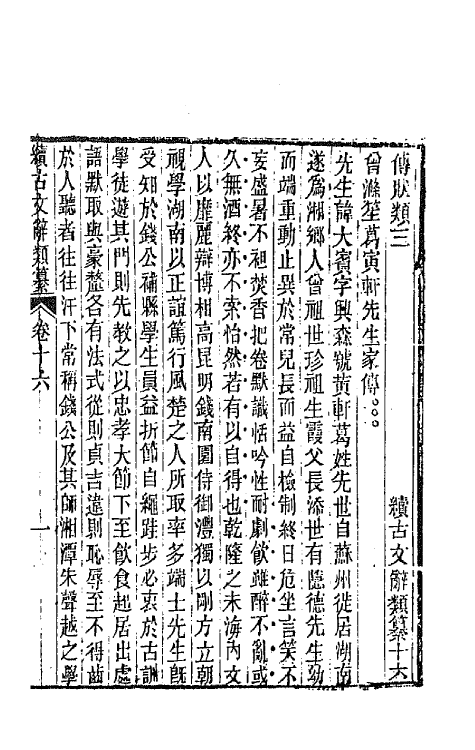 傳狀類三　續古文辭類纂十六
曾滌笙葛寅軒先生家傳。。。
先生諱大賓字興森號寅軒葛姓先世自蘇州徙居湖南
遂爲湘鄉人曾祖世珍祖生霞父長添世有隱德先生幼
而端重動止異於常兒長而益自檢制終日危坐言笑不
妄盛暑不袒焚香把卷默識恬吟性耐劇飲雖醉不亂或
久無酒終亦不索怡然若有以自得也乾隆之末海內文
人以靡麗辯博相高昆明錢南園侍御灃獨以剛方立朝
視學湖南以正誼篤行風楚之人所取率多端士先生旣
受知於錢公補縣學生員益折節自繩跬步必衷於古訓
學徒遊其門則先教之以忠孝大節下至飲食起居出處
語默取與豪釐各有法式從則貞吉違則恥辱至不得齒
於人聽者往往汗下常稱錢公及其師湘潭朱聲越之學
續古文辭類纂　卷十六　一